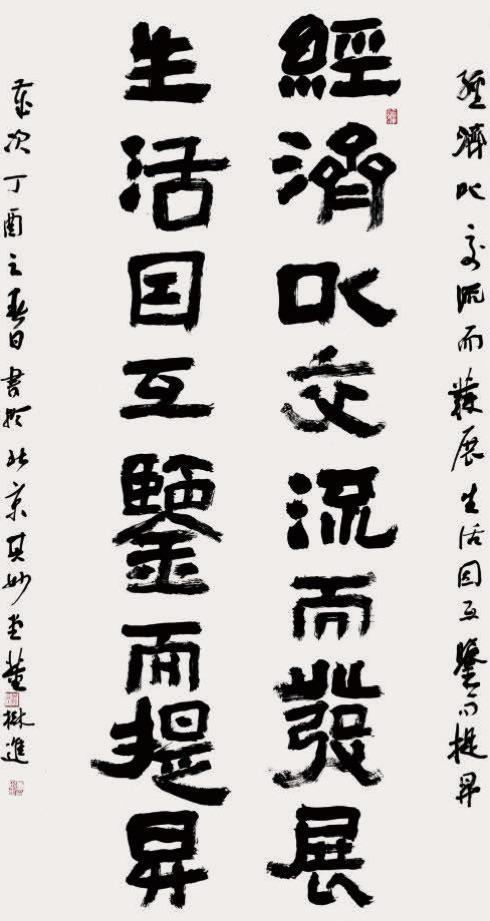 經濟以交流而發展生活因互鑒而提昇
經濟以交流而發展
生活因互鑒而提昇
歲次丁酉之春日書於北京其妙堂董楸進